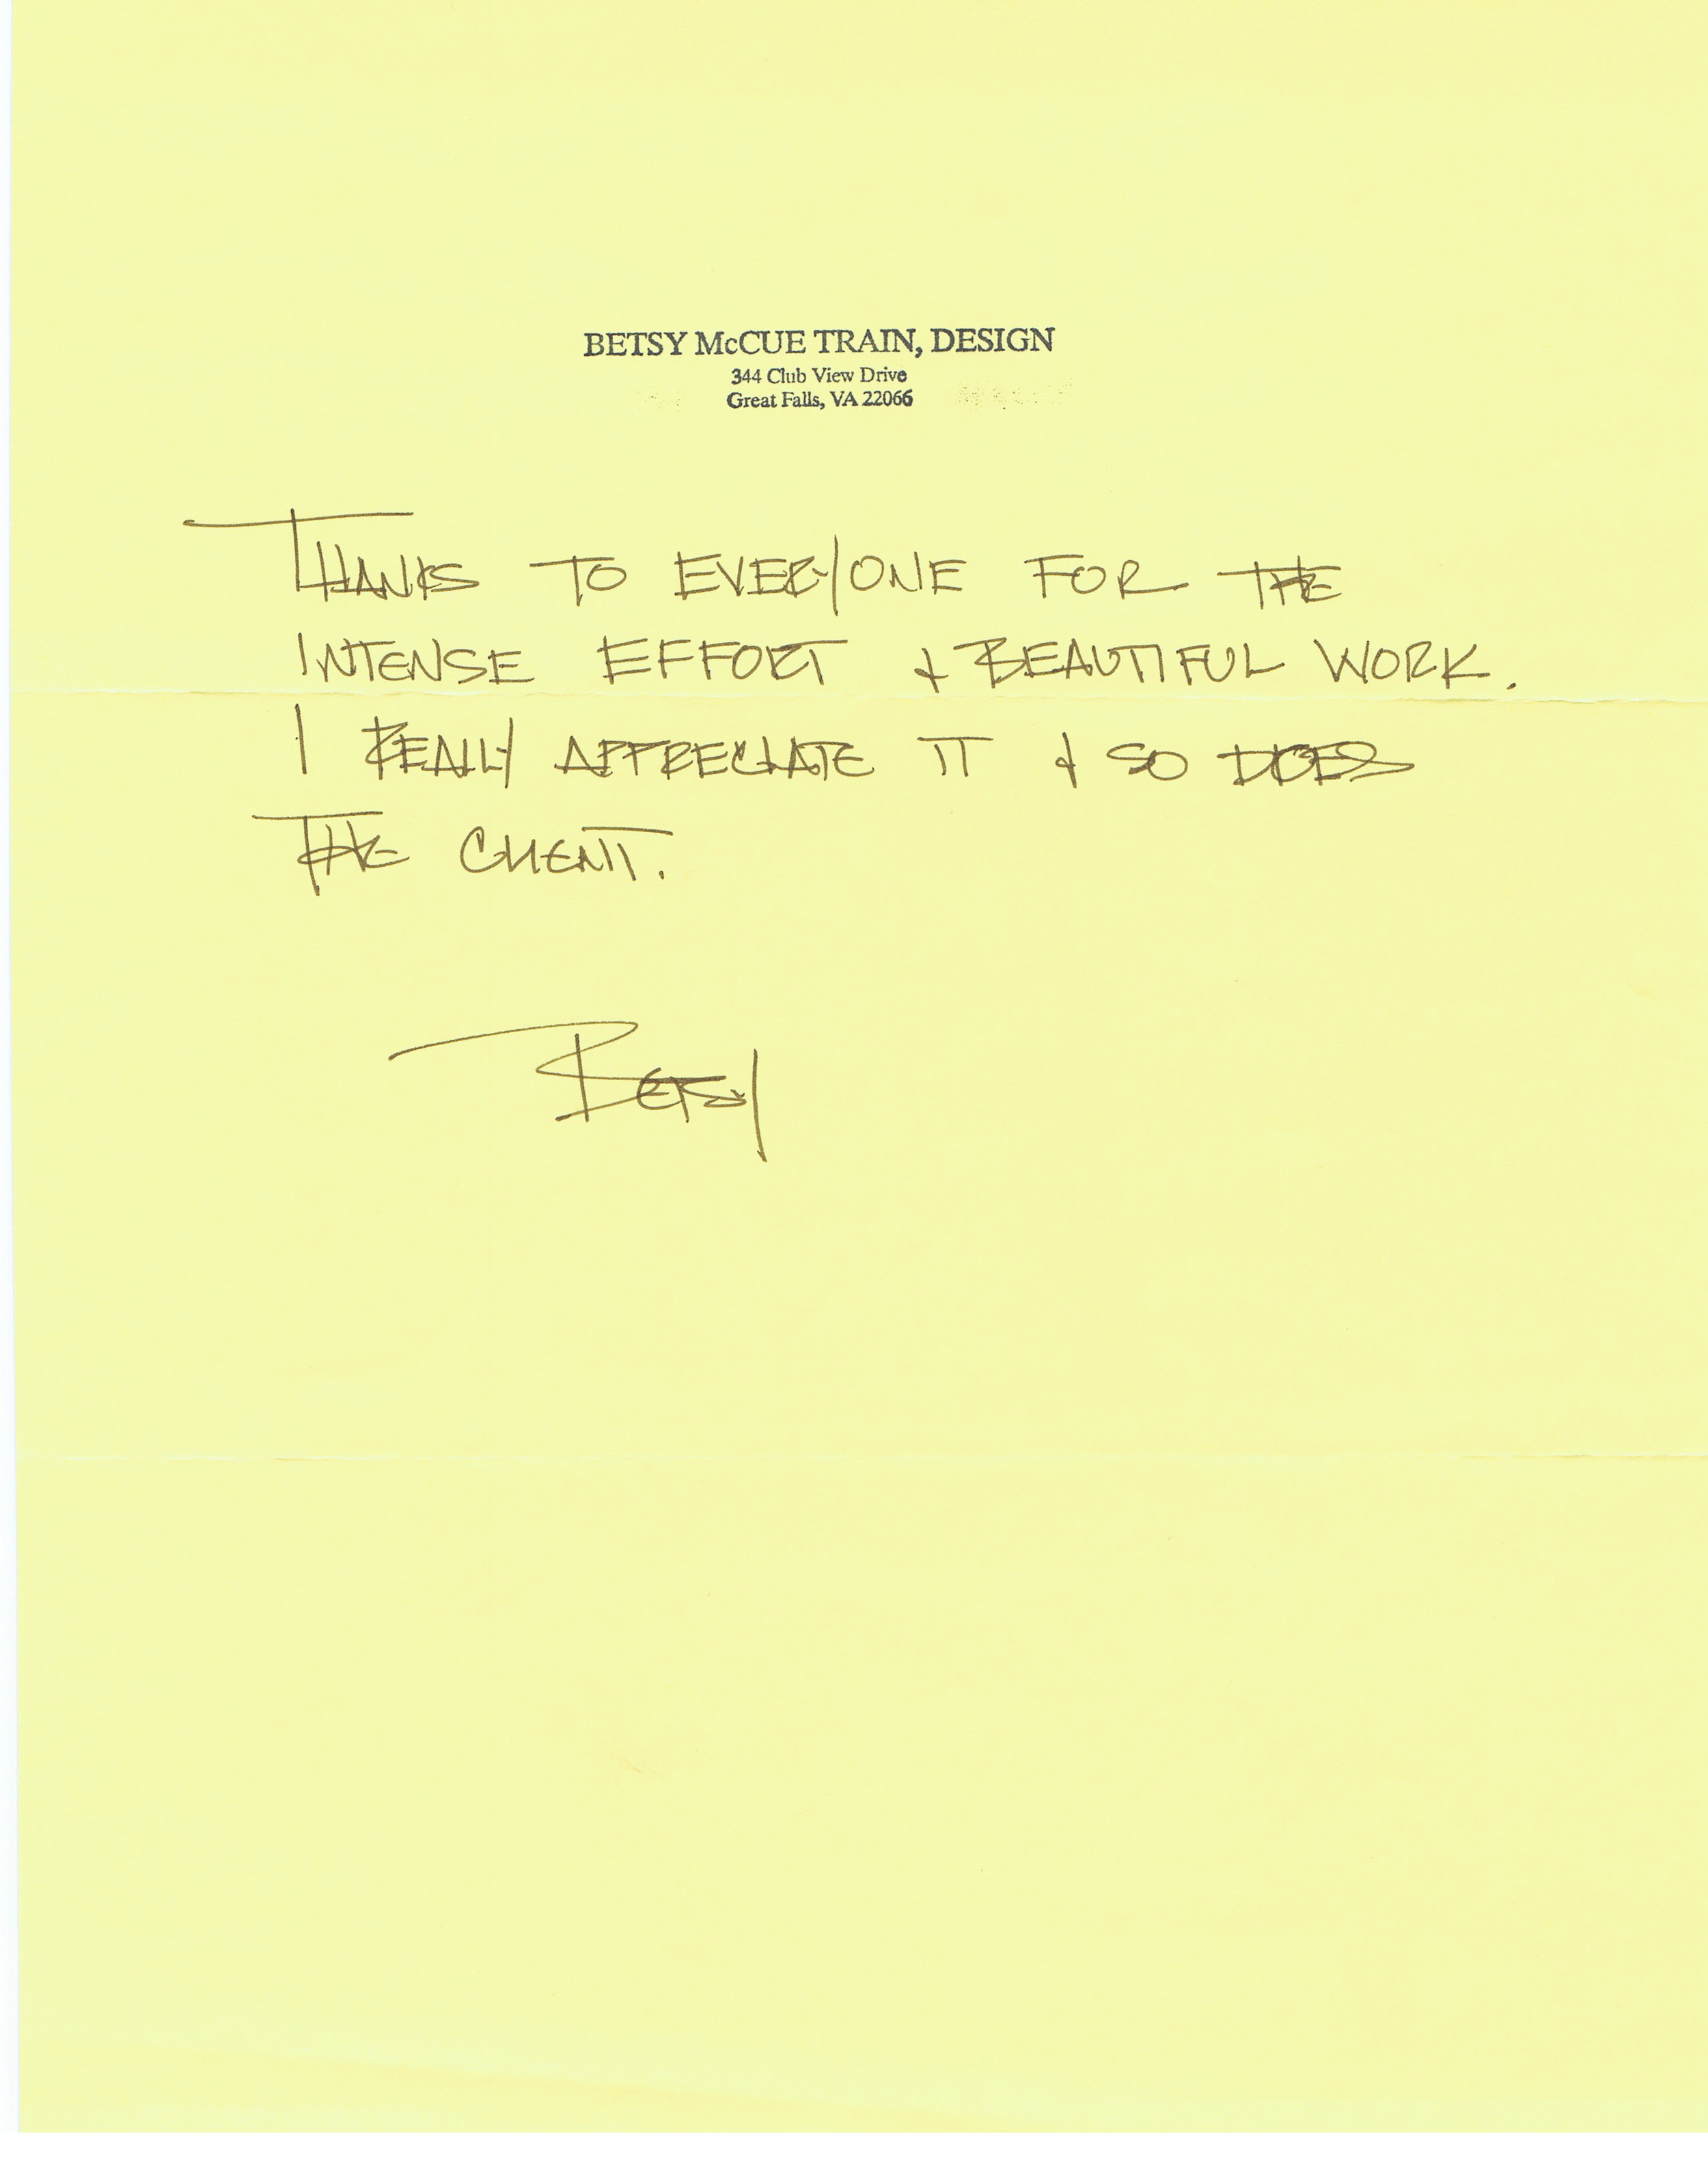 BETSY McCUE TRAIN, DESIGN
344 Club View Drive
Great Falls, VA 22066
THANKS TO EVERYONE FOR THE
INTENSE EFFORT & BEAUTIFUL WORK.
I REALLY APPRECIATE IT & SO DOES
THE CLIENT.
BETSY